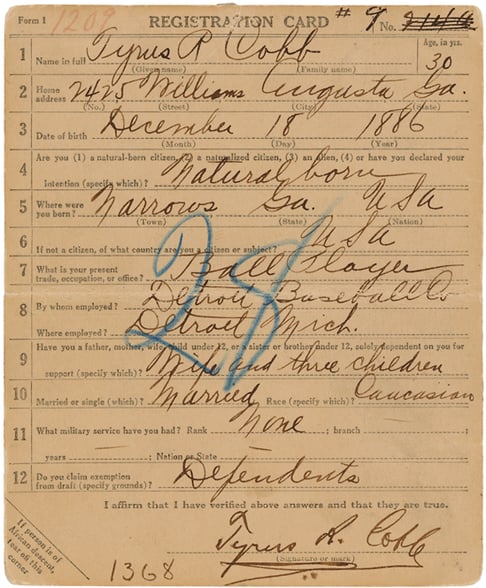 Form 1 1209 REGISTRATION CARD # 9 No.
1 Name in full Tyrus R Cobb Age, in yrs. 30
(Given name) (Family name)
2 Home address 2425 Williams Augusta Ga.
(No.) (Street) (City) (State)
3 Date of birth December 18 1886
(Month) (Day) (Year)
4 Are you (1) a natural-born citizen, (2) a naturalized citizen, (3) an alien, (4) or have you declared your
intention (specify which)? Natural born
5 Where were you born? Narrows Ga. USA
(Town) (State) (Nation)
6 If not a citizen, of what country are you a citizen or subject? USA
7 What is your present trade, occupation, or office? Ball Player
8 By whom employed? Detroit Baseball Co
Where employed? Detroit Mich.
9 Have you a father, mother, wife, child under 12, or a sister or brother under 12, solely dependent on you for
support (specify which)? Wife and three children
10 Married or single (which)? Married Race (specify which)? Caucasian
11 What military service have you had? Rank None ; branch
years ; Nation or State
12 Do you claim exemption from draft (specify grounds)? Dependents
I affirm that I have verified above answers and that they are true.
Tyrus R. Cobb
(Signature or mark)
If person is of
African descent,
tear off this
corner
1368
28